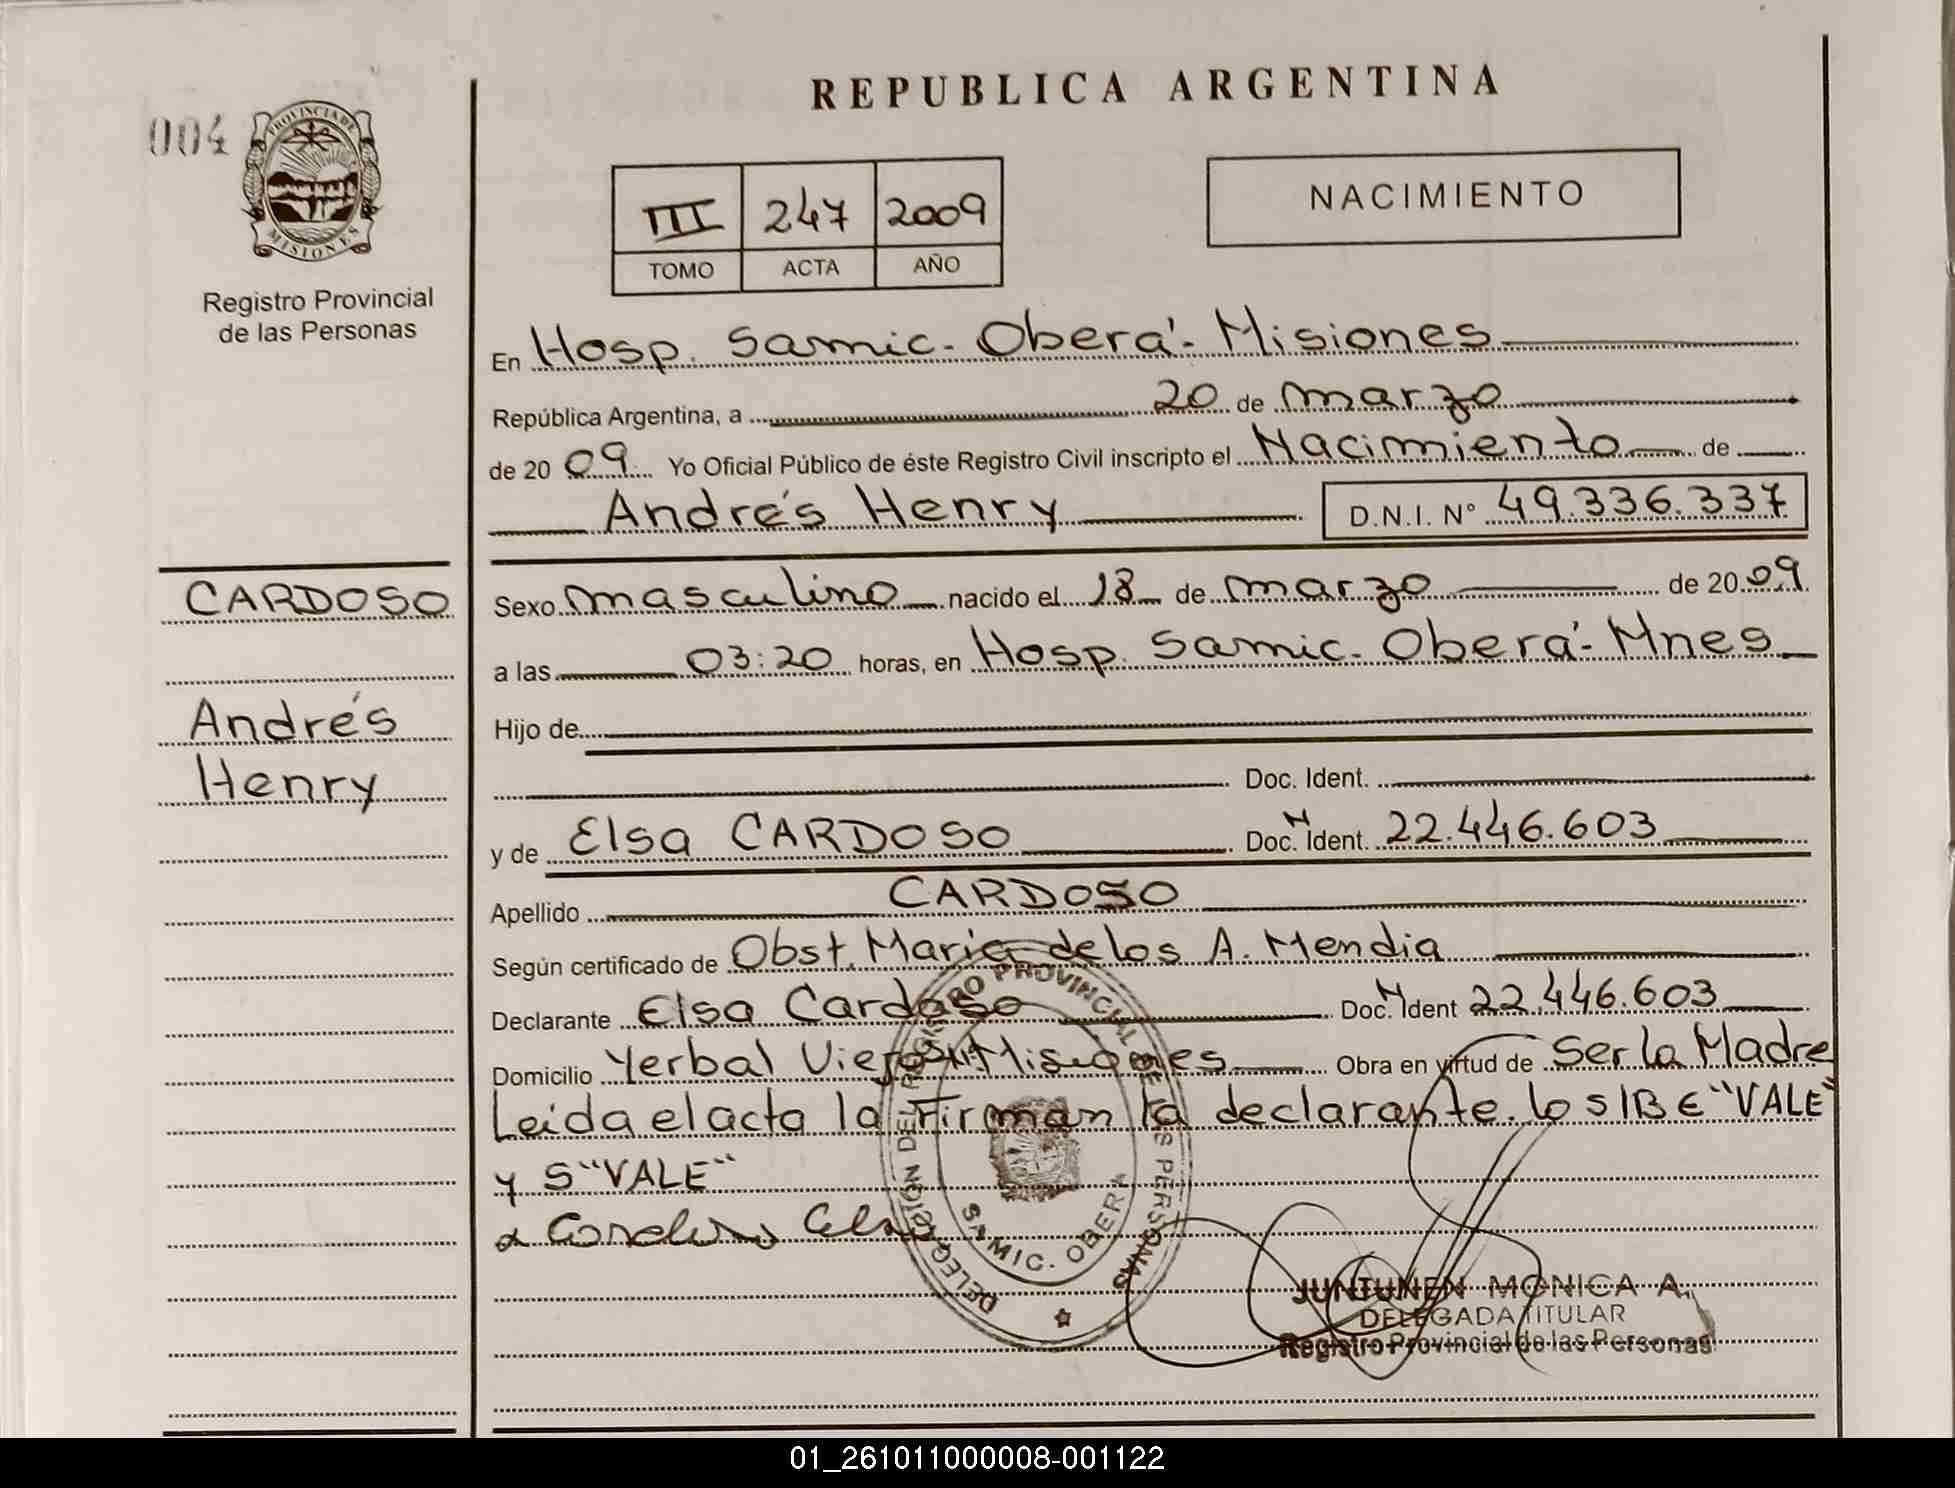 REPUBLICA ARGENTINA
004
PROVINCIA DE MISIONES
Registro Provincial
de las Personas
III 247 2009
TOMO ACTA AÑO
NACIMIENTO
En Hosp. Samic. Oberá - Misiones
República Argentina, a 20 de marzo
de 2009 Yo Oficial Público de éste Registro Civil inscripto el Nacimiento de
Andrés Henry D.N.I. N° 49.336.337
CARDOSO
Andrés
Henry
Sexo masculino nacido el 18 de marzo de 2009
a las 03:20 horas, en Hosp. Samic. Oberá - Mnes
Hijo de
Doc. Ident.
y de Elsa CARDOSO Doc. N Ident. 22.446.603
Apellido CARDOSO
Según certificado de Obst. Maria de los A. Mendia
Declarante Elsa Cardoso Doc. N Ident 22.446.603
Domicilio Yerbal Viejo Misiones Obra en virtud de Ser la Madre
Leida el acta la Firman la declarante. lo s/B E "VALE"
y S "VALE"
DELEGACIÓN DEL REGISTRO PROVINCIAL DE LAS PERSONAS
SAMIC. OBERA
JUNTUNEN MONICA A.
DELEGADA TITULAR
Registro Provincial de las Personas
01_261011000008-001122